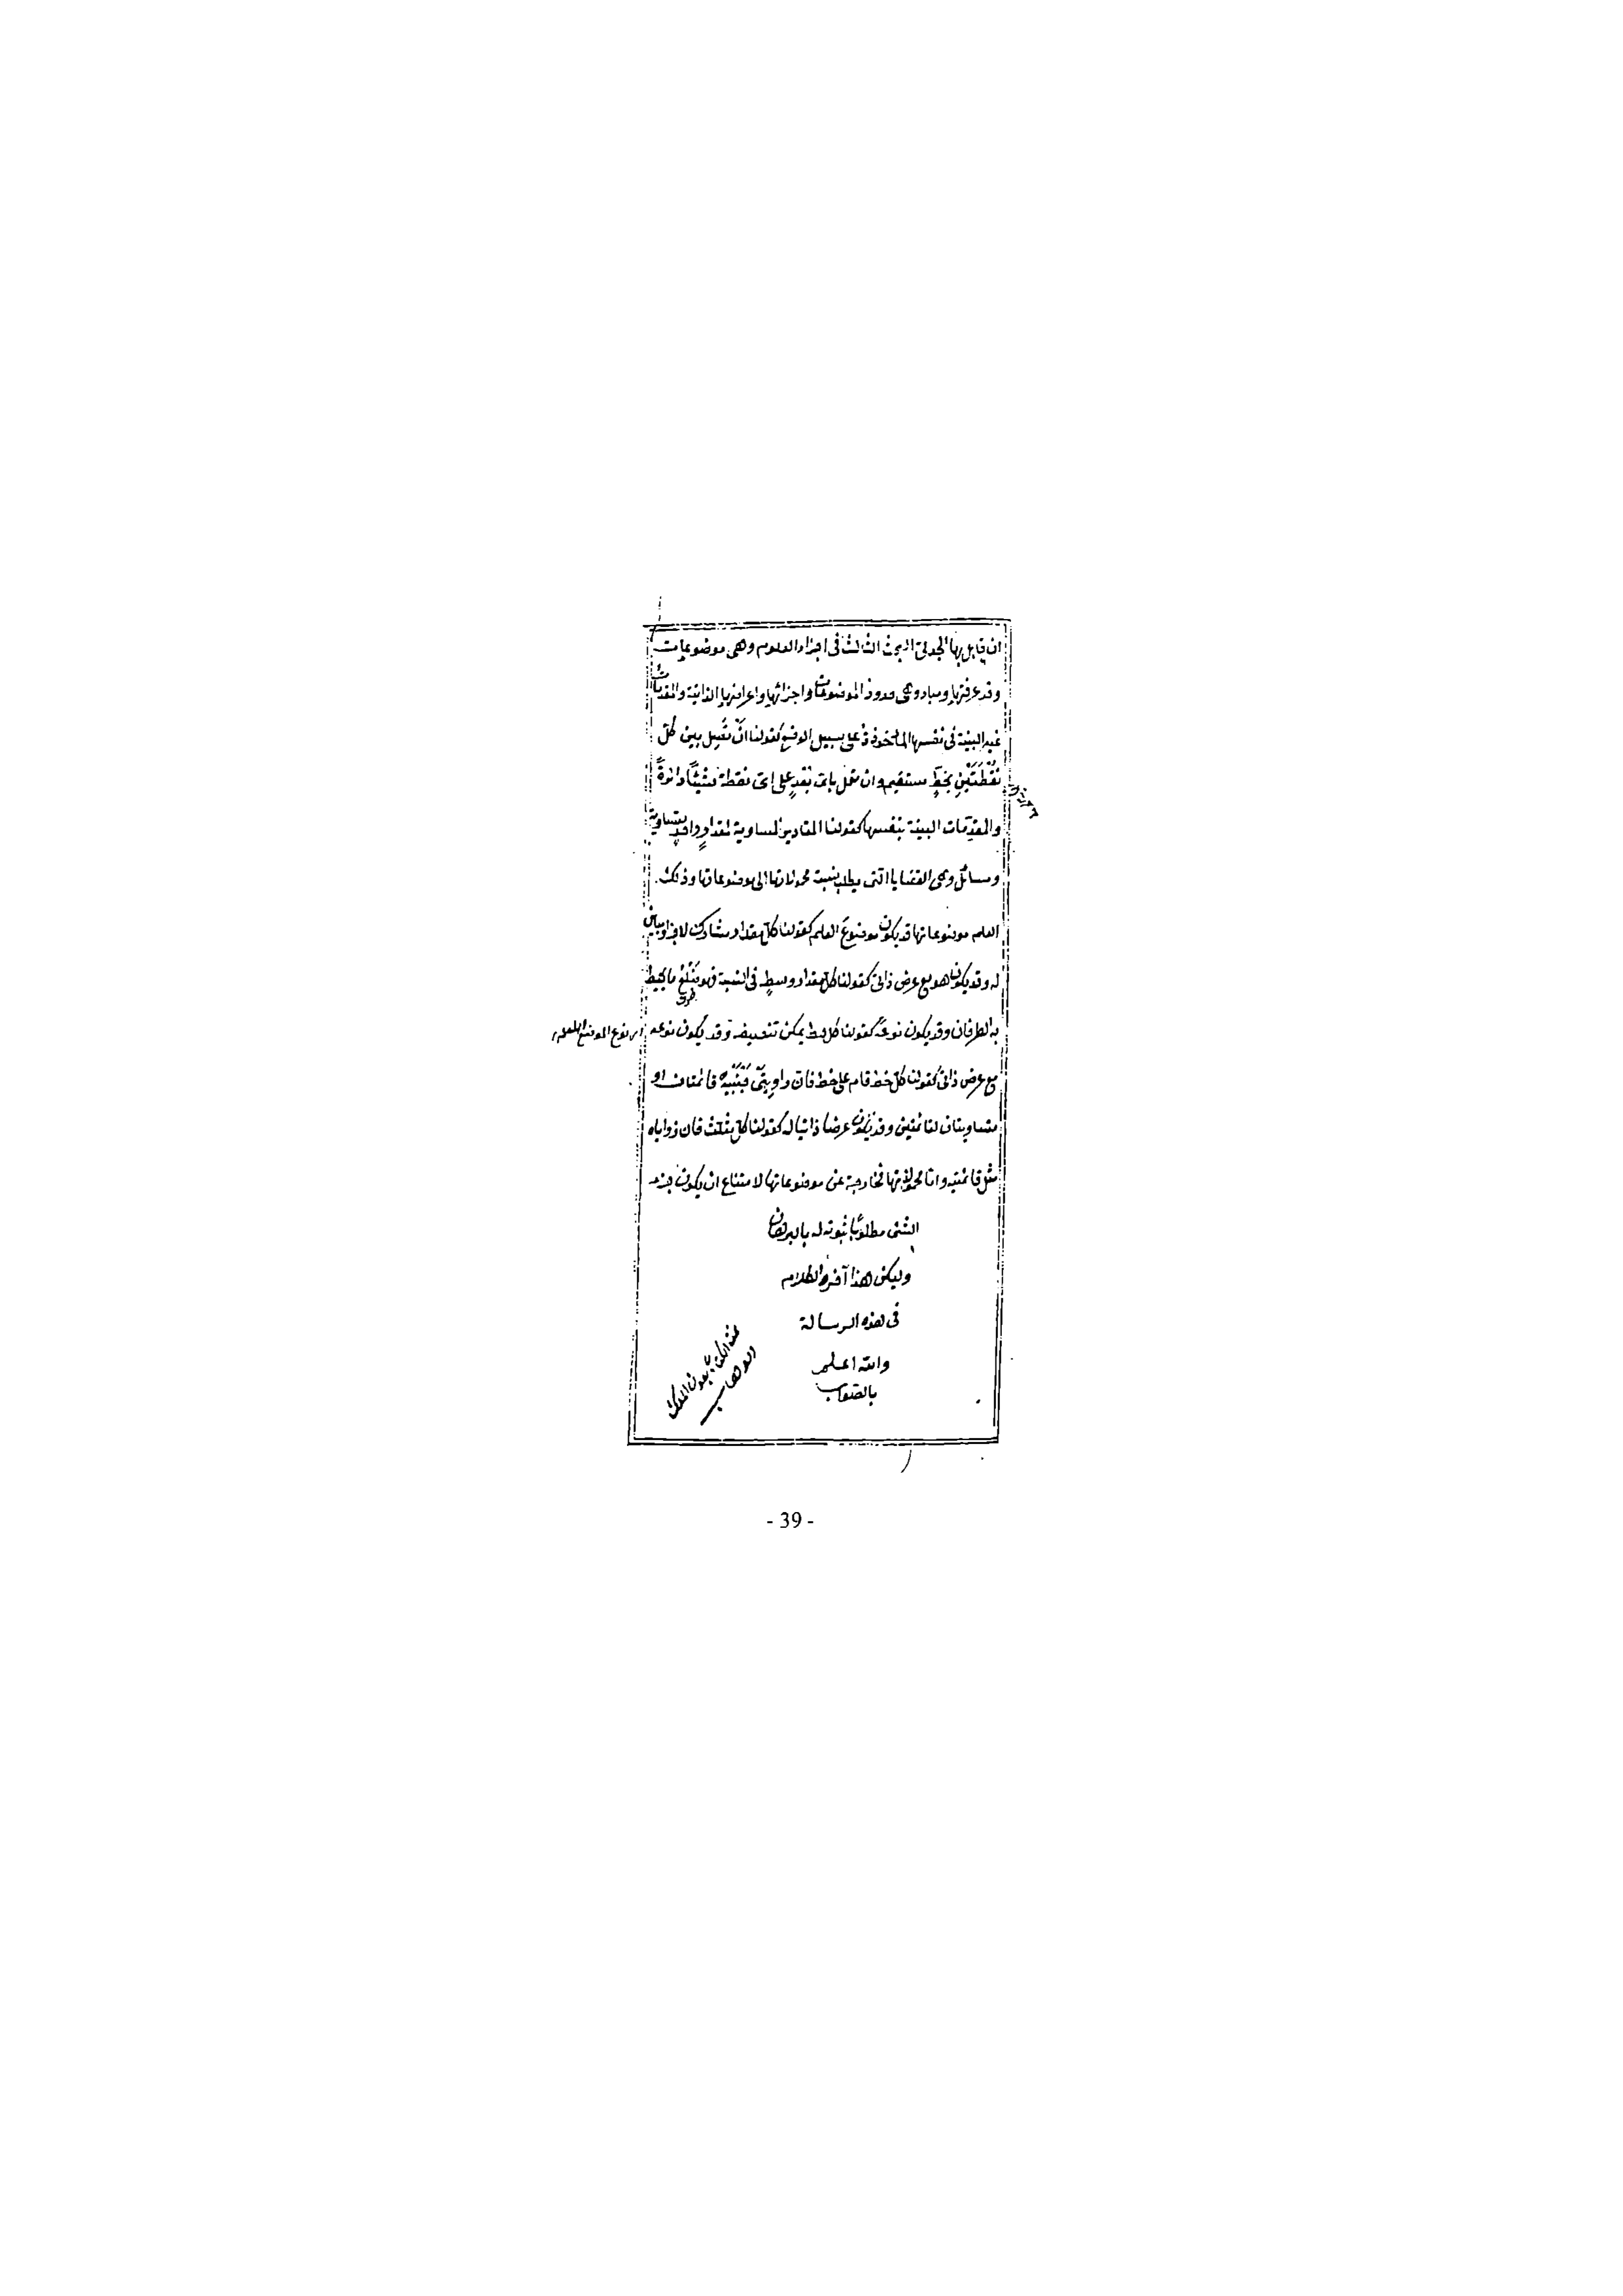 ان قابل بها الجدلى البحث الثالث فى اجزاء العلوم وهى موضوعات
وقد عرفتها ومبادوهى حدود الموضوعات واجزائها واعراضها الذاتية والمقدمات
غير البينة فى نفسها المأخوذة على سبيل الوضع كقولنا ان نَصِل بين كلّ
نُقْطَتَيْنِ بخطٍّ مستقيم وان نعمل باىّ بُعْدٍ على اىّ نقطة شيئًا دائرةً
والمقدّمات البينة بنفسها كقولنا المقادير المساوية لمقدارٍ واحدٍ متساوية
ومسائل وهى القضايا التى يطلب نسبة محمولاتها الى موضوعاتها وذلك
العلم موضوعاتها قد يكون موضوع العلم كقولنا كلّ مقدار مشارك لاخر او مباين
له وقد يكون هو مع عرض ذاتى كقولنا كل مقدار وسطٍ فى النسبة فهو ضلع ما يحيط
به الطرفان وقد يكون نوعه كقولنا كل خط يمكن تنصيفه وقد يكون نوعه
اى نوع الموضع العلم
مع عرض ذاتى كقولنا كلّ خط قام على خط فان زاويتى جنبيه قائمتان او
متساويتان لقائمتين وقد يكون عرضا ذاتيا له كقولنا كل مثلث فان زواياه
مثل قائمتيه وامّا محمولاتها فخارجة عن موضوعاتها لامتناع ان يكون جزء
الشئ مطلوبًا ثبوته له بالبرهان
وليكن هذا آخر الكلام
فى هذه الرسالة
والله اعلم
بالصواب
تمت الكتاب بعون الملك
الوهاب
- 39 -